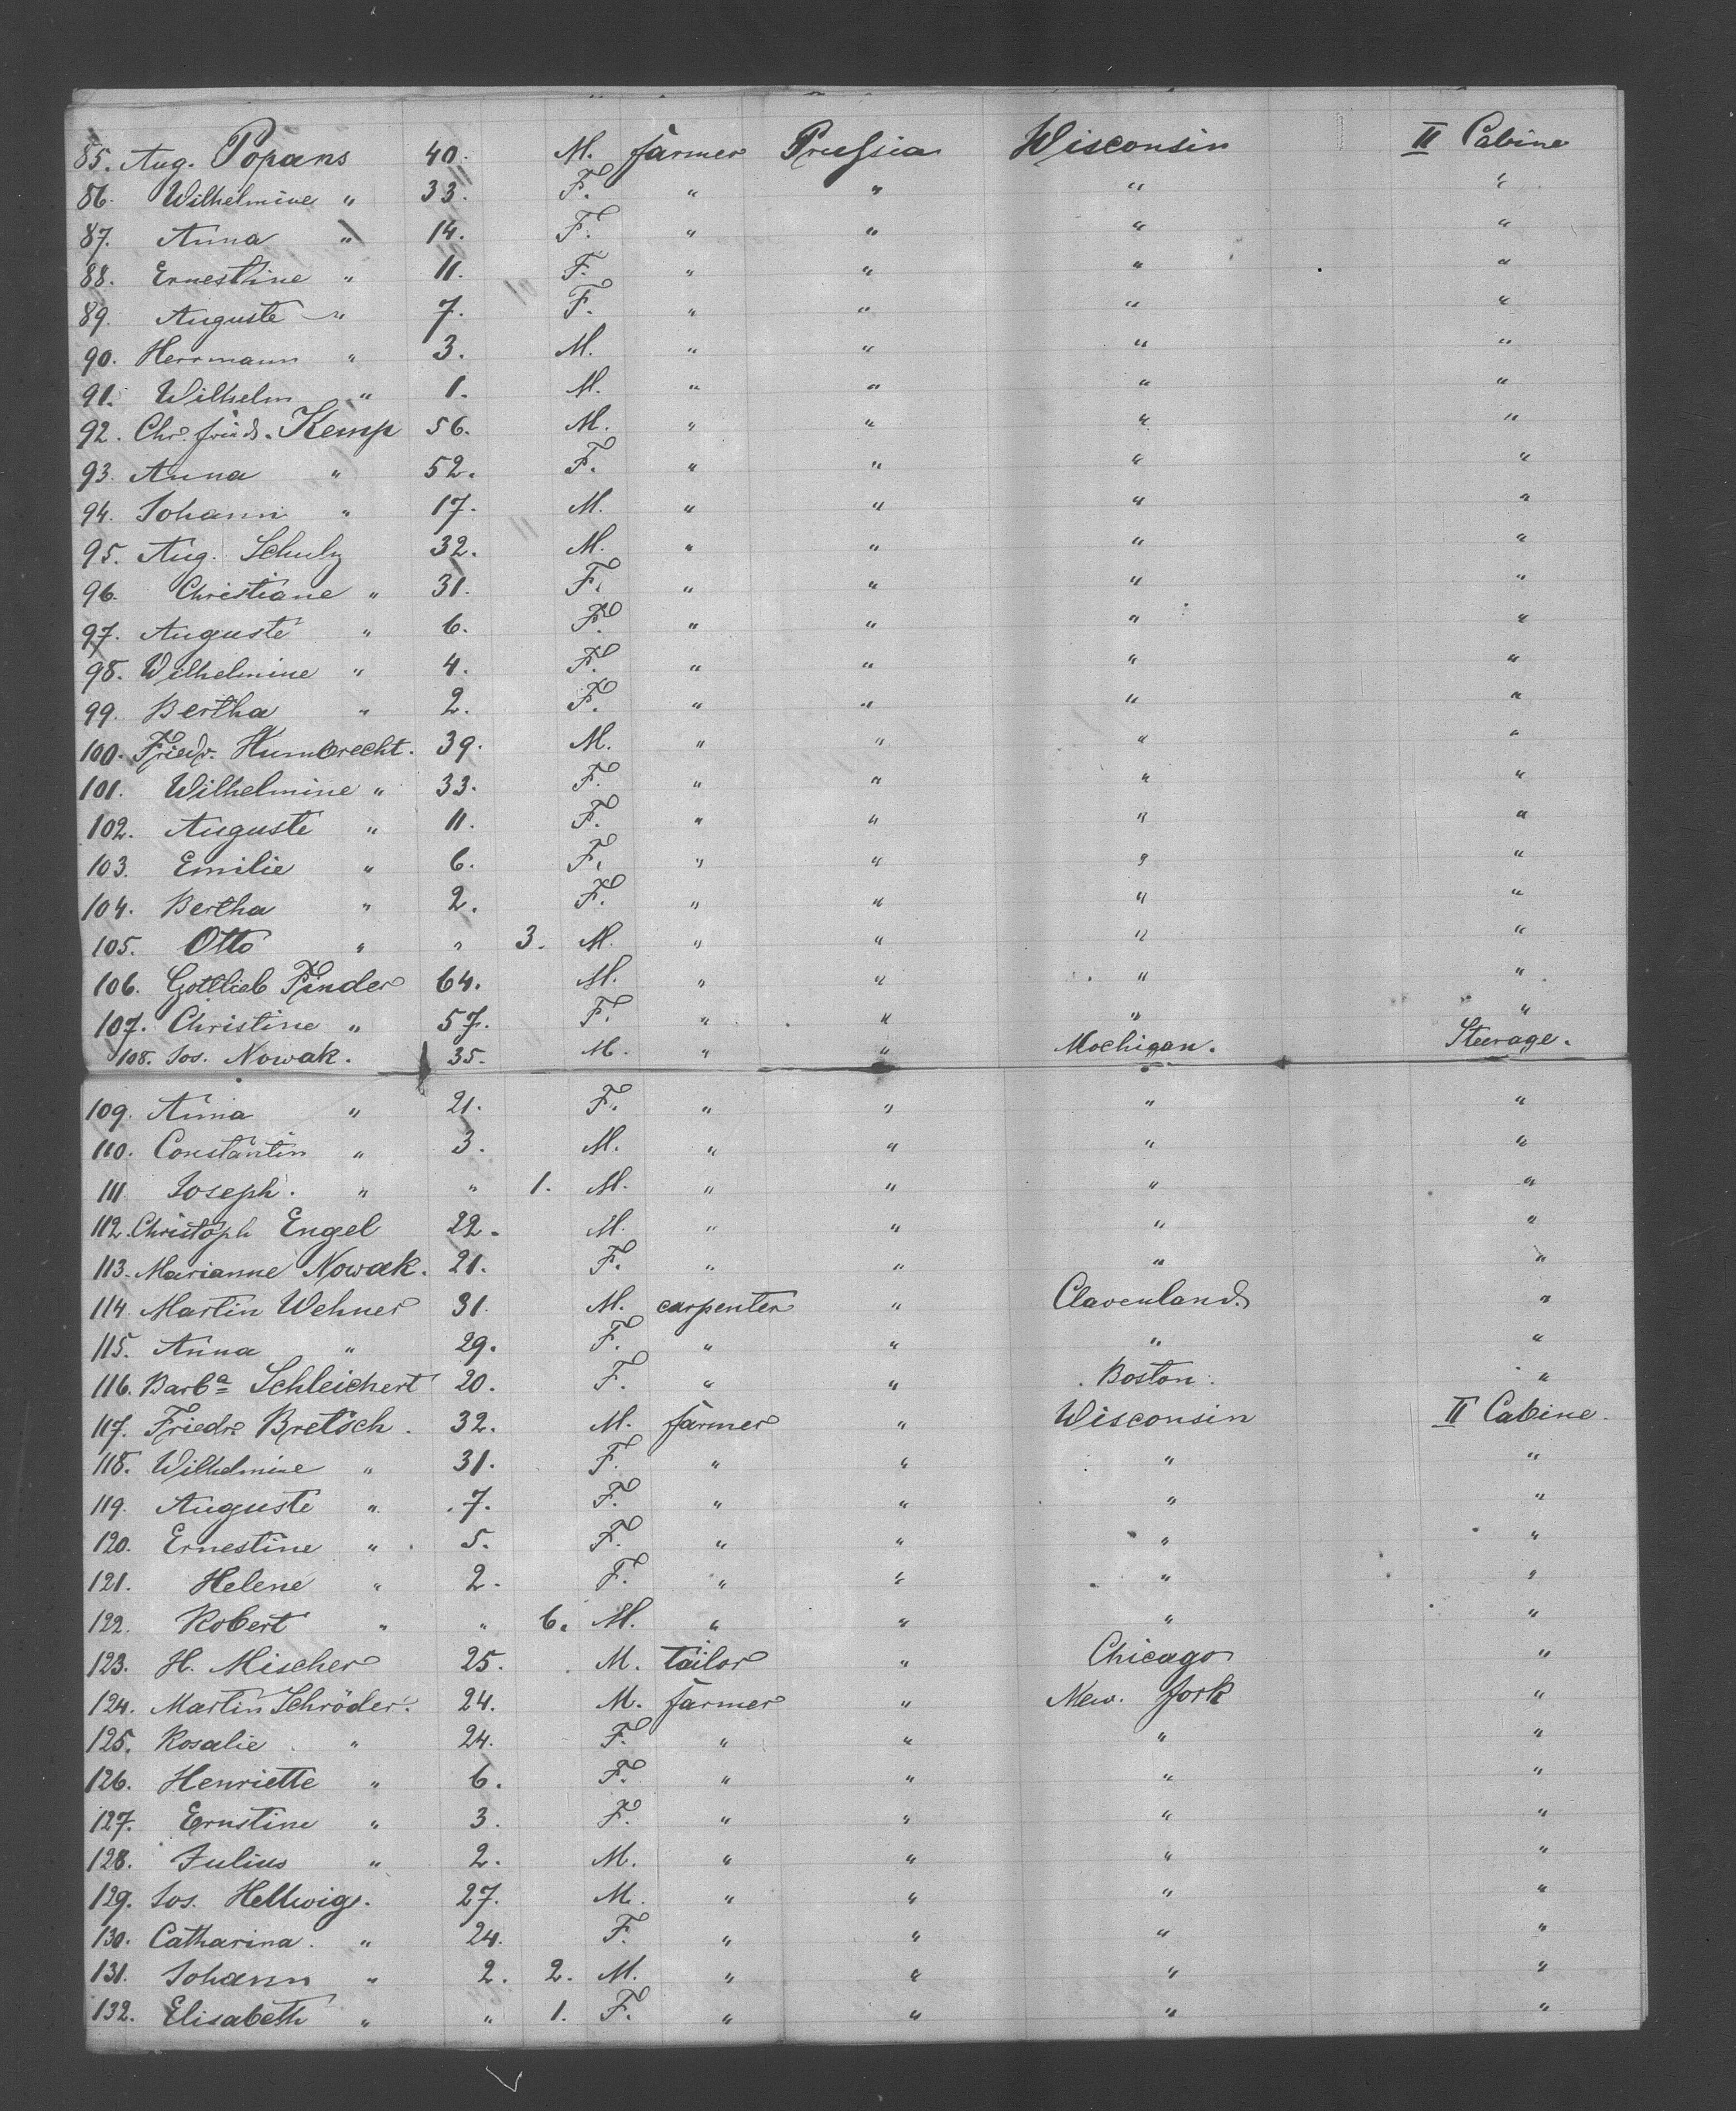 85. Aug. Popans 40. M. farmer Prussia Wisconsin II Cabine
86. Wilhelmine " 33. F. " " " "
87. Anna " 14. F. " " " "
88. Ernestine " 11. F. " " " "
89. Auguste " 7. F. " " " "
90. Herrmann " 3. M. " " " "
91. Wilhelm " 1. M. " " " "
92. Chr. fried. Kemp 56. M. " " " "
93. Anna " 52. F. " " " "
94. Johann " 17. M. " " " "
95. Aug. Schulz 32. M. " " " "
96. Christiane " 31. F. " " " "
97. Auguste " 6. F. " " " "
98. Wilhelmine " 4. F. " " " "
99. Bertha " 2. F. " " " "
100. Friedr. Humbrecht. 39. M. " " " "
101. Wilhelmine " 33. F. " " " "
102. Auguste " 11. F. " " " "
103. Emilie " 6. F. " " " "
104. Bertha " 2. F. " " " "
105. Otto " " 3. M. " " " "
106. Gottlieb Finder 64. M. " " " "
107. Christine " 57. F. " " " "
108. Jos. Nowak. 35. M. " " Mochigan. Steerage.
109. Anna " 21. F. " " " "
110. Constantin " 3. M. " " " "
111 Joseph. " " 1. M. " " " "
112. Christoph Engel 22. M. " " " "
113. Marianne Nowak. 21. F. " " " "
114. Martin Wehner 31. M. carpenter " Clavenland. "
115. Anna " 29. F. " " " "
116. Barba Schleichert 20. F. " " Boston. "
117. Friedr. Bretsch. 32. M. farmer " Wisconsin II Cabine.
118. Wilhelmine " 31. F. " " " "
119. Auguste " 7. F. " " " "
120. Ernestine " 5. F. " " " "
121. Helene " 2. F. " " " "
122. Robert " " 6. M. " " " "
123. H. Mischer 25. M. tailor " Chicago "
124. Martin Schröder. 24. M. farmer " New. York "
125. Rosalie " 24. F. " " " "
126. Henriette " 6. F. " " " "
127. Ernstine " 3. F. " " " "
128. Julius " 2. M. " " " "
129. Jos. Hellwig. 27. M. " " " "
130. Catharina. " 24. F. " " " "
131. Johann " 2. 2. M. " " " "
132. Elisabeth " " 1. F. " " " "